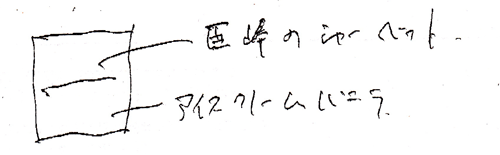 巨峰のシャーベット.
アイスクリームバニラ.